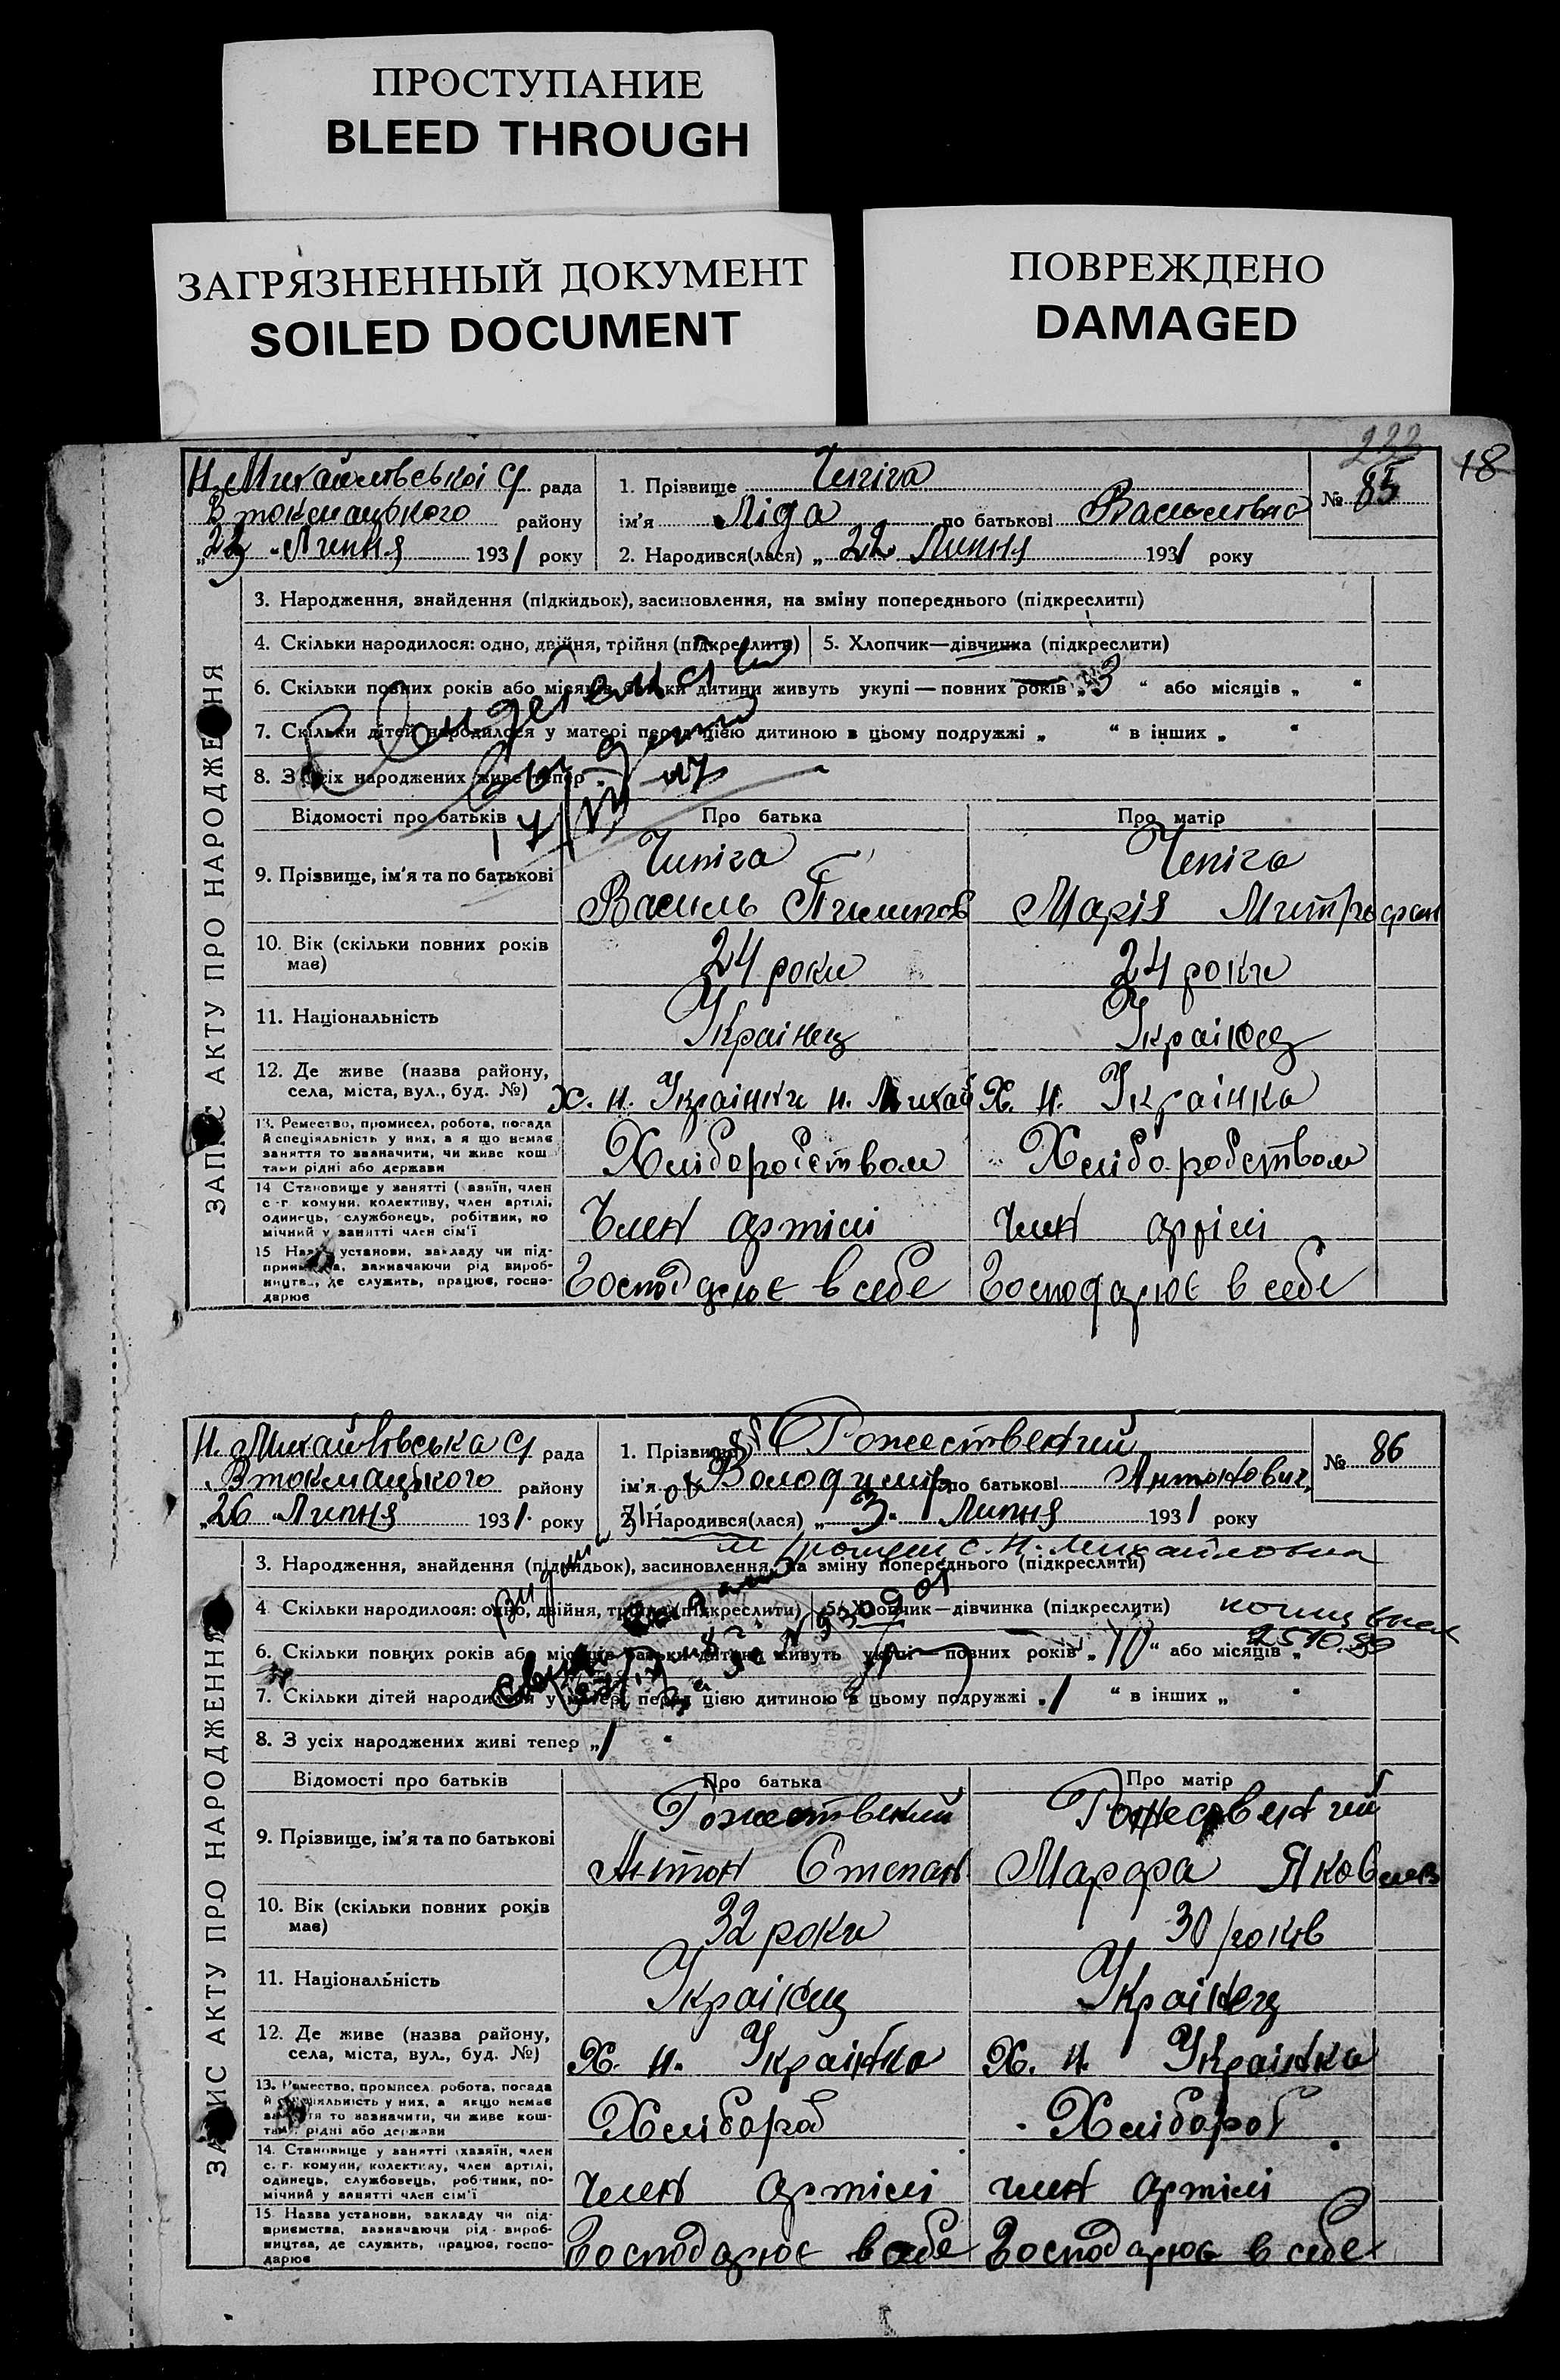 ПРОСТУПАНИЕ
BLEED THROUGH
ЗАГРЯЗНЕННЫЙ ДОКУМЕНТ
SOILED DOCUMENT
ПОВРЕЖДЕНО
DAMAGED
223
18
Н. Михайловської С/ рада
В токмацького району
" Липня 1931 року
1. Прізвище Чепіга
ім'я Ліда по батькові Васильовна
2. Народився(лася) „ 22 Липня 1931 року
№ 85
ЗАПИС АКТУ ПРО НАРОДЖЕННЯ
3. Народження, знайдення (підкидьок), засиновлення, на зміну попереднього (підкреслити)
4. Скільки народилося: одно, двійня, трійня (підкреслити)
5. Хлопчик—дівчинка (підкреслити)
6. Скільки повних років або місяців батьки дитини живуть укупі — повних років „ 3 “ або місяців „ “
7. Скільки дітей народилося у матері перед цією дитиною в цьому подружжі „ “ в інших „ “
8. З усіх народжених живе тепер
Відомості про батьків
Про батька
Про матір
9. Прізвище, ім'я та по батькові
Чипіга
Василь Пилипов
Чепіга
Марія Митрофан
10. Вік (скільки повних років має)
24 роки
24 роки
11. Національність
Українец
Українец
12. Де живе (назва району,
села, міста, вул., буд. №)
х. Н. Українки Н. Михай
Х. Н. Українка
13. Ремество, промисел, робота, посада
й спеціяльність у них, а я що немає
заняття то зазначити, чи живе кош
тами рідні або держави
Хліборобством
Хліборобством
14 Становище у занятті ( азяїн, член
с -г комуни, колективу, член артілі,
одинець, службовець, робітник, по
мічний у занятті член сім'ї
Член артілі
член артілі
15 Назва установи, закладу чи під-
приємства, зазначаючи рід вироб-
ництва, де служить, працює, госпо-
дарює
Господарює в себе
Господарює в себе
Н. Михайловська С/ рада
Втокмацького району
„26 “ Липня 1931. року
1. Прізвище Рожественский
ім'я Володимир по батькові Антонович
2. Народився(лася) „ 3. Липня 1931 року
№ 86
ЗАПИС АКТУ ПРО НАРОДЖЕННЯ
3. Народження, знайдення (підкидьок), засиновлення, на зміну попереднього (підкреслити)
4 Скільки народилося: одно, двійня, трійня (підкреслити)
5. Хлопчик—дівчинка (підкреслити)
6. Скільки повних років або місяців батьки дитини живуть укупі — повних років „ 10 “ або місяців „
7. Скільки дітей народилося у матері перед цією дитиною в цьому подружжі „ 1 “ в інших „ “
8. З усіх народжених живі тепер „ 1 “
Відомості про батьків
Про батька
Про матір
9. Прізвище, ім'я та по батькові
Рожественкий
Антон Степан
Марфа Яковлев
10. Вік (скільки повних років має)
32 роки
30 років
11. Національність
Українец
Українец
12. Де живе (назва району,
села, міста, вул., буд. №)
Х. Н. Українка
Х. Н. Українка
13. Ремество, промисел робота, посада
й спеціяльність у них, а якщо немає
заняття то зазначити, чи живе кош-
тами рідні або держави
Хлібороб
Хлібороб
14. Становище у занятті (хазяїн, член
с. г. комуни, колективу, член артілі,
одинець, службовець, робітник, по-
мічний у занятті член сім'ї
член артілі
член артілі
15 Назва установи, закладу чи під-
приємства, зазначаючи рід вироб-
ництва, де служить, працює, госпо-
дарює
Господарює в себе
Господарює в себе